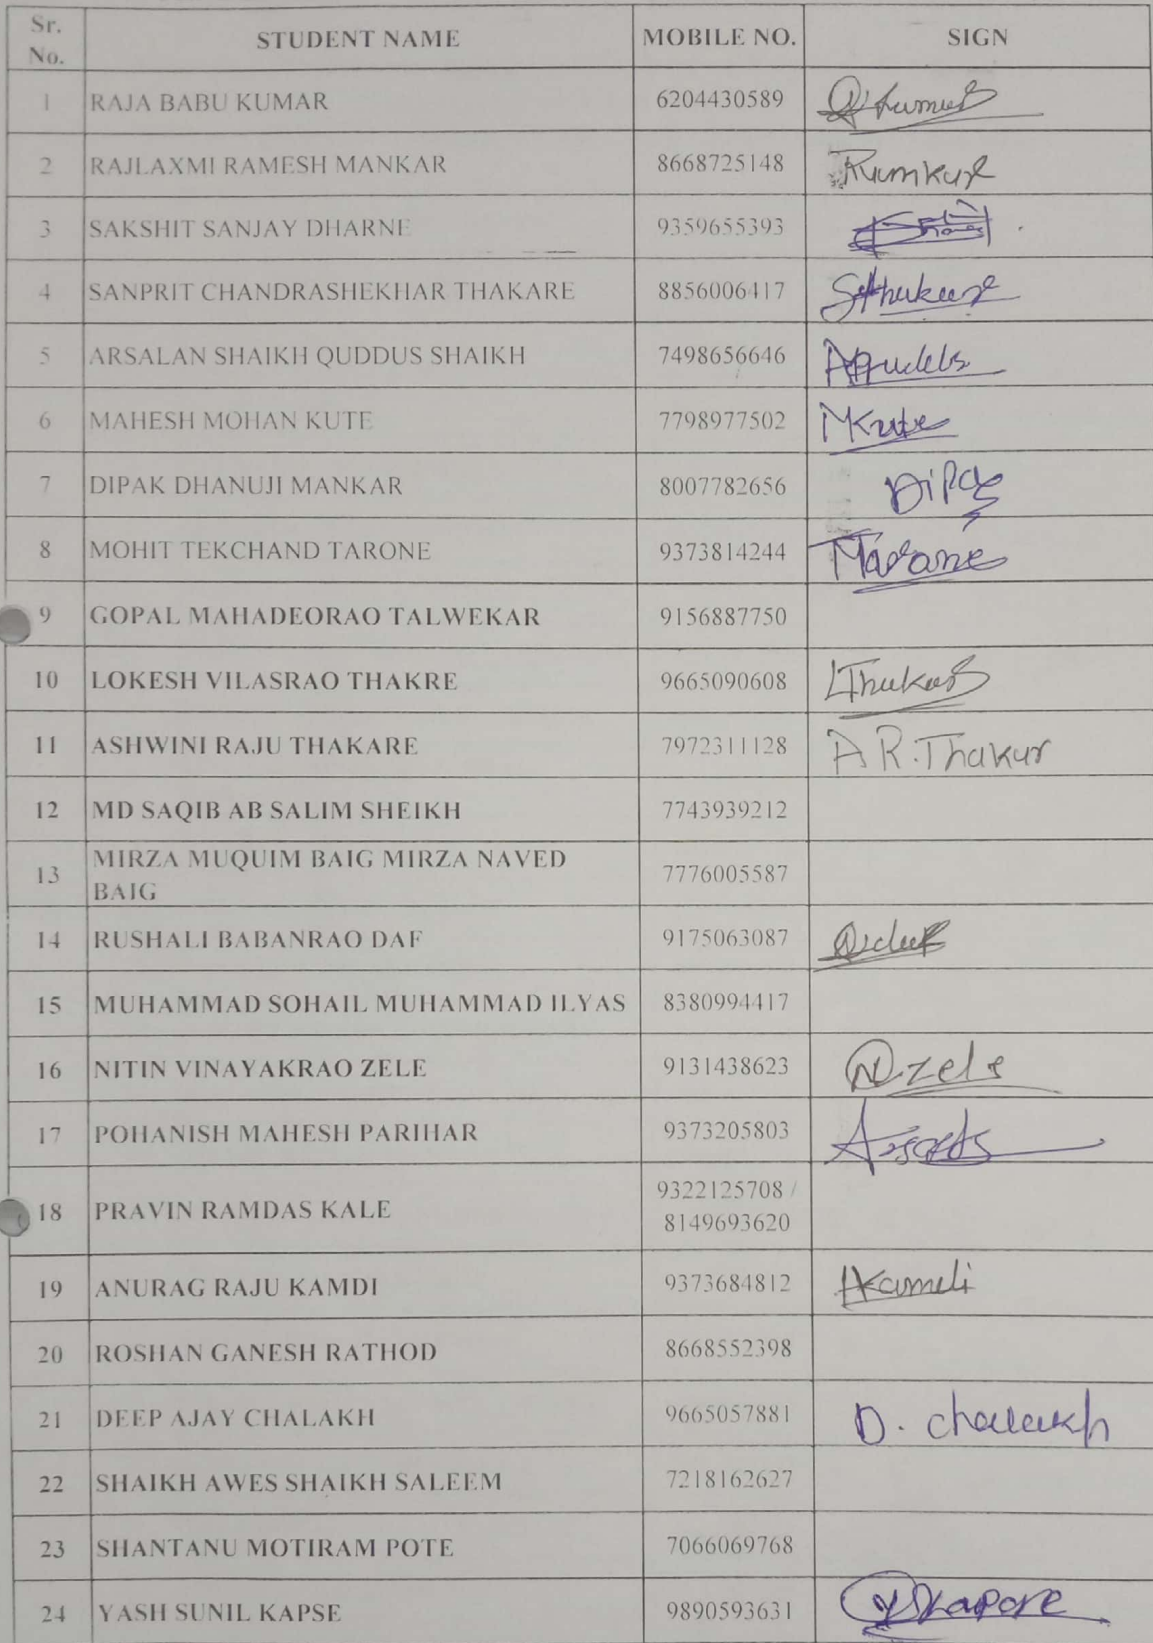 Sr. No. STUDENT NAME MOBILE NO. SIGN
1 RAJA BABU KUMAR 6204430589
2 RAJLAXMI RAMESH MANKAR 8668725148
3 SAKSHIT SANJAY DHARNE 9359655393
4 SANPRIT CHANDRASHEKHAR THAKARE 8856006417
5 ARSALAN SHAIKH QUDDUS SHAIKH 7498656646
6 MAHESH MOHAN KUTE 7798977502 MKute
7 DIPAK DHANUJI MANKAR 8007782656 Dipak
8 MOHIT TEKCHAND TARONE 9373814244
9 GOPAL MAHADEORAO TALWEKAR 9156887750
10 LOKESH VILASRAO THAKRE 9665090608
11 ASHWINI RAJU THAKARE 7972311128 A R. Thakur
12 MD SAQIB AB SALIM SHEIKH 7743939212
13 MIRZA MUQUIM BAIG MIRZA NAVED 7776005587
BAIG
14 RUSHALI BABANRAO DAF 9175063087
15 MUHAMMAD SOHAIL MUHAMMAD ILYAS 8380994417
16 NITIN VINAYAKRAO ZELE 9131438623
17 POHANISH MAHESH PARIHAR 9373205803
18 PRAVIN RAMDAS KALE 9322125708 /
8149693620
19 ANURAG RAJU KAMDI 9373684812
20 ROSHAN GANESH RATHOD 8668552398
21 DEEP AJAY CHALAKH 9665057881 D. chalakh
22 SHAIKH AWES SHAIKH SALEEM 7218162627
23 SHANTANU MOTIRAM POTE 7066069768
24 YASH SUNIL KAPSE 9890593631